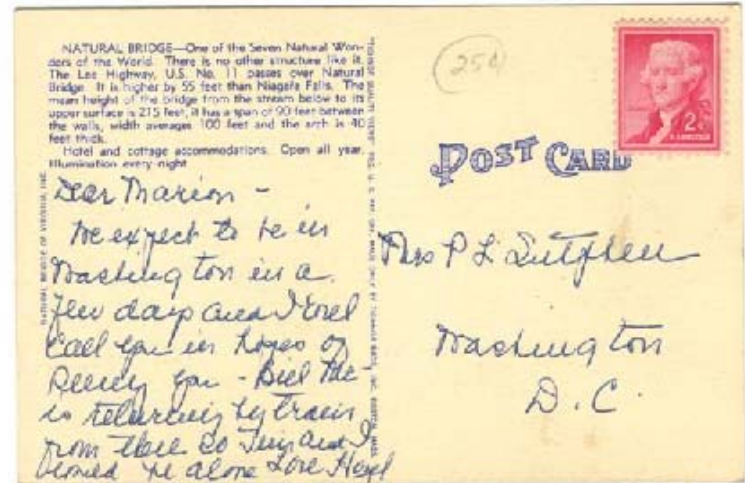 NATURAL BRIDGE—One of the Seven Natural Won-
ders of the World. There is no other structure like it.
The Lee Highway, U.S. No. 11 passes over Natural
Bridge. It is higher by 55 feet than Niagara Falls. The
mean height of the bridge from the stream below to its
upper surface is 215 feet, it has a span of 90 feet between
the walls, width averages 100 feet and the arch is 40
feet thick.
Hotel and cottage accommodations. Open all year.
Illumination every night
NATURAL BRIDGE OF VIRGINIA, INC.
Dear Marion -
We expect to be in
Washington in a
few days and I will
call you in hopes of
seeing you - Bill
is returning by train
from there so and I
alone Love Hazel
25¢
POST CARD
2¢
Mrs P L Sutphen
Washington
D.C.